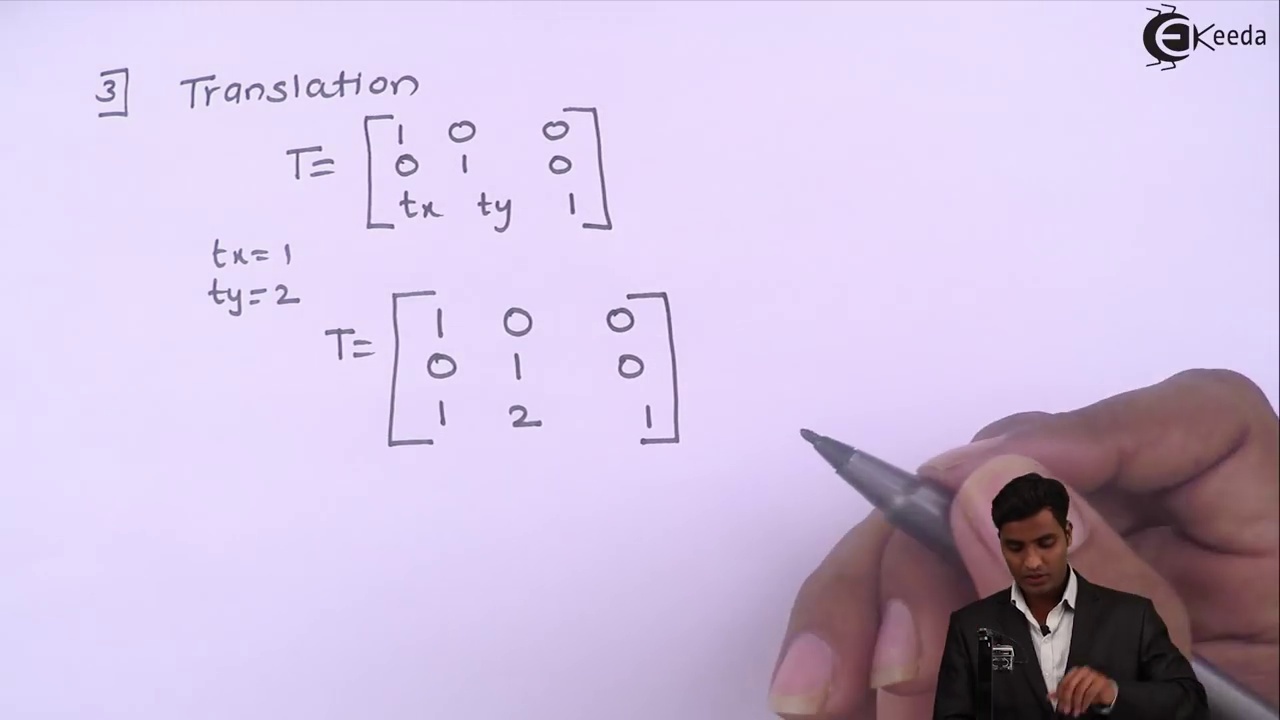 EKeeda
3] Translation
T= [ 1 0 0
0 1 0
tx ty 1 ]
tx = 1
ty = 2
T= [ 1 0 0
0 1 0
1 2 1 ]